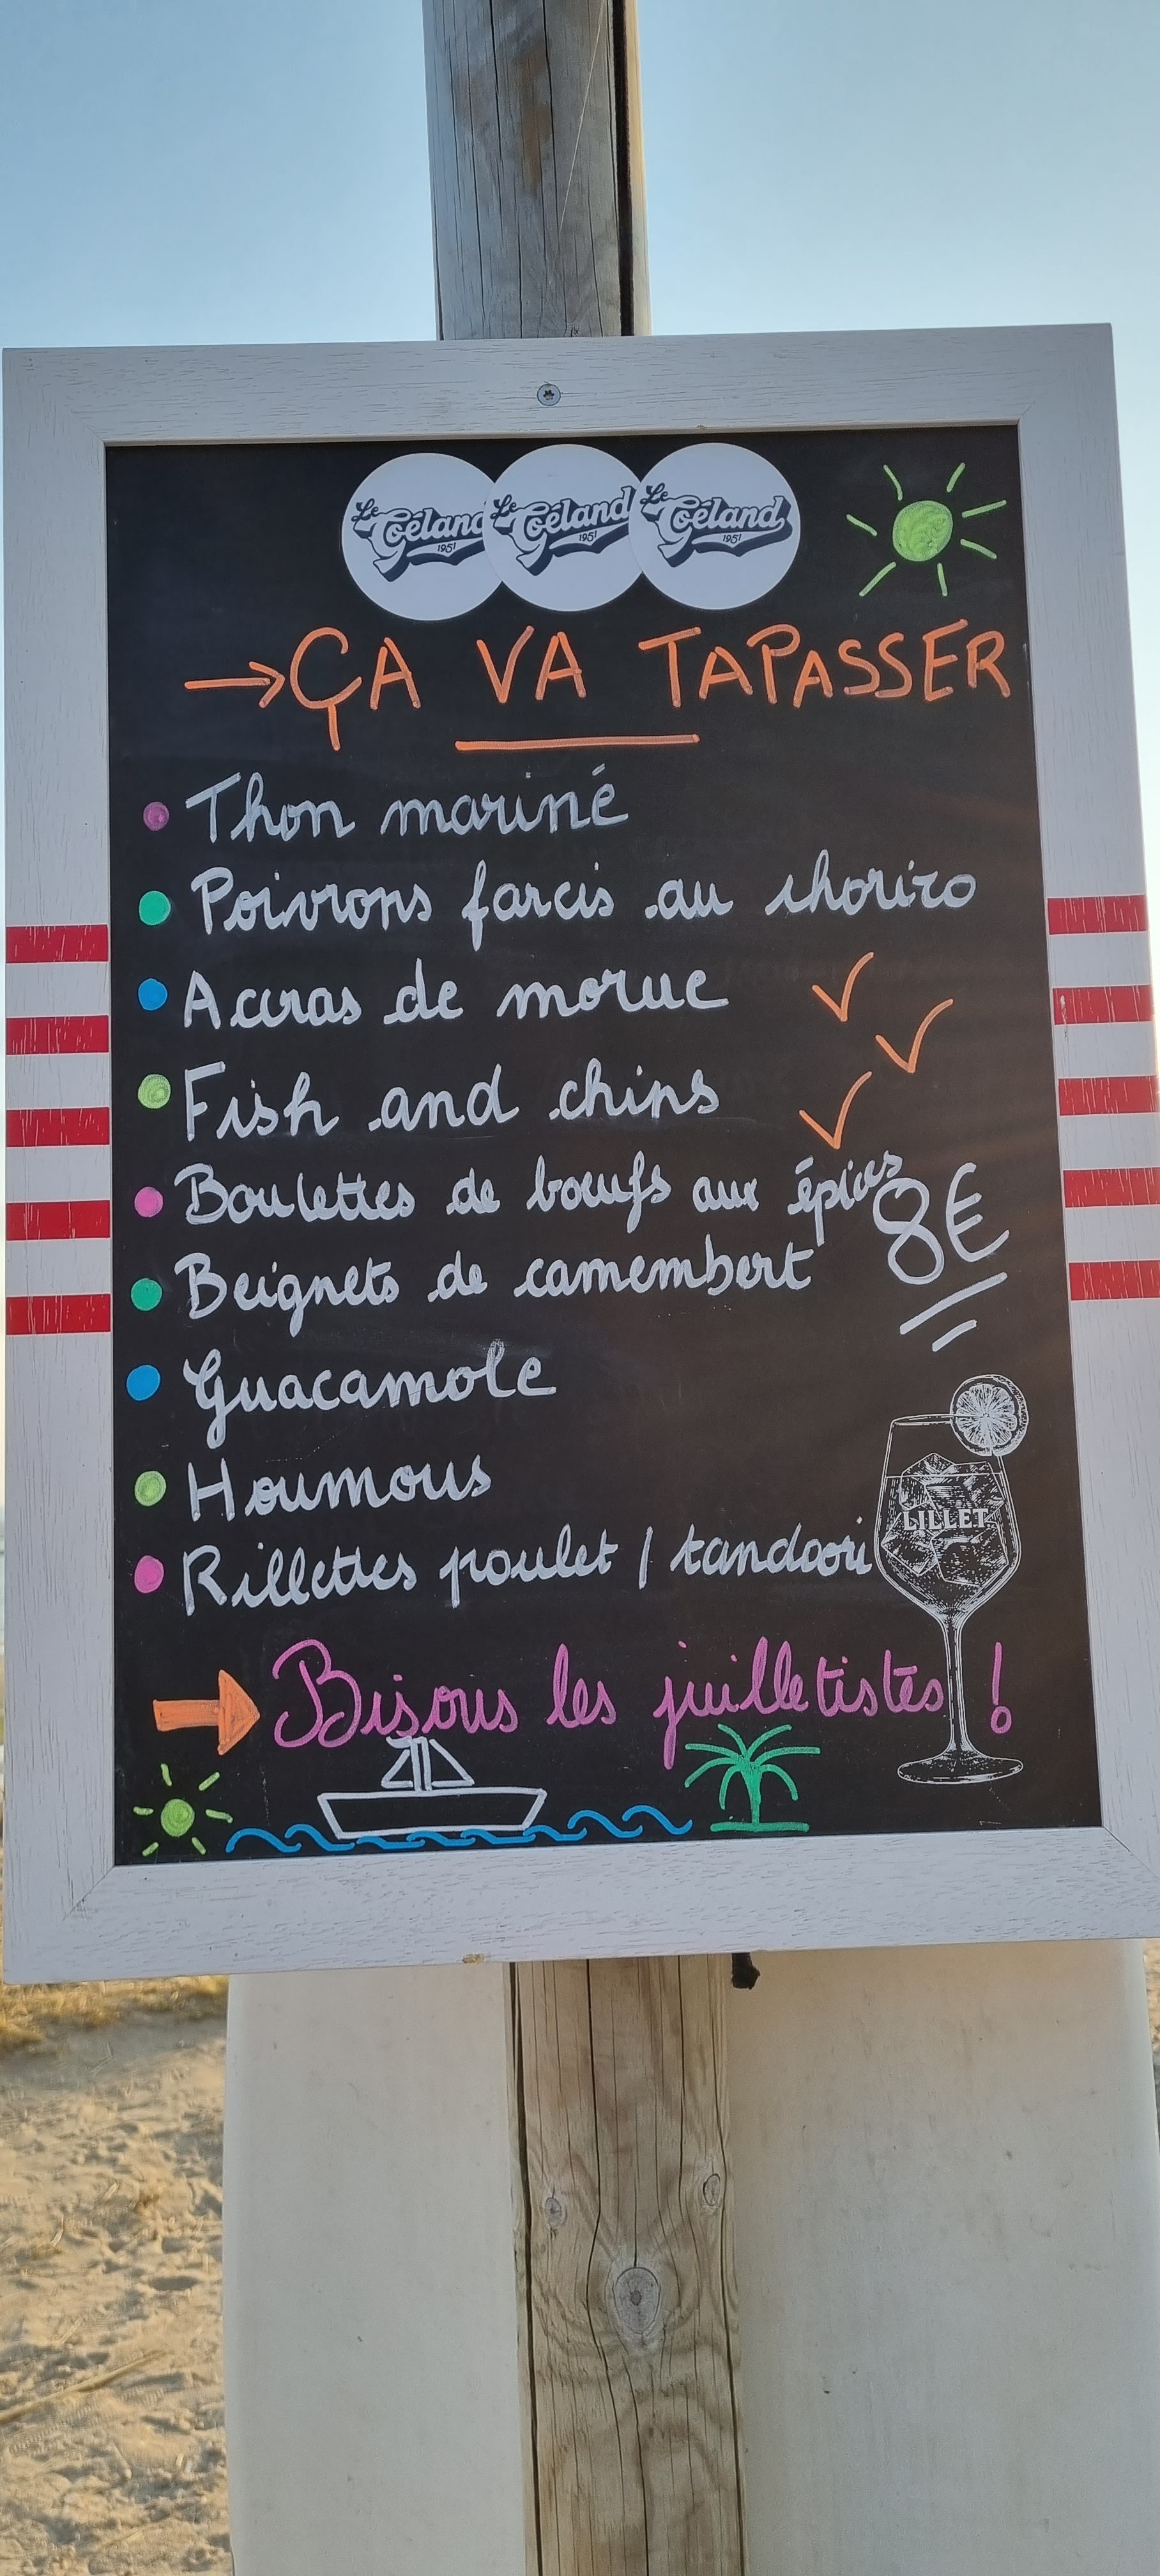 Le Goéland 1951
Le Goéland 1951
Le Goéland 1951
→ ÇA VA TAPASSER
Thon mariné
Poivrons farcis au chorizo
Accras de morue
Fish and chips
Boulettes de boeufs aux épices
8€
Beignets de camembert
Guacamole
Houmous
LILLET
Rillettes poulet / tandoori
Bisous les juilletistes !